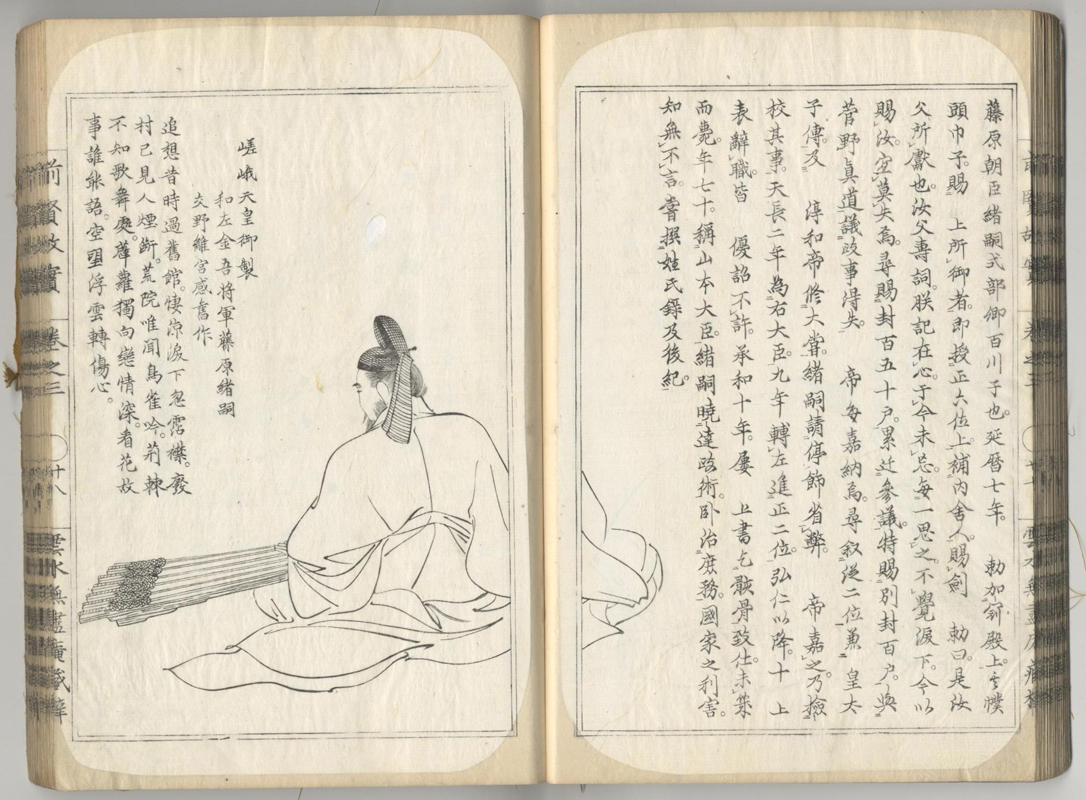 藤原朝臣緒嗣式部卿百川子也。延暦七年。 勅加冠殿上。
頭巾子。賜 上所御者。即授正六位上。補內舍人。賜劍 勅曰。是汝
父所獻也。汝父壽詞。朕記在心。于今未忘。每一思之。不覺淚下。今以
賜汝。宜莫失焉。尋賜封百五十戶。累迁參議。特賜別封百戶。與
菅野真道議政事得失。 帝每嘉納焉。尋叙從二位兼 皇太
子傳。及 淳和帝修大嘗。緒嗣請停飾省弊。 帝嘉之。乃撿
校其事。天長二年為右大臣。九年轉左進正二位。弘仁以降。十 上
表辭職。皆 優詔不許。承和十年。屢 上書乞骸骨致仕。未幾
而薨。年七十。稱山本大臣。緒嗣曉達政術。臥治庶務。國家之利害。
知無不言。嘗撰姓氏錄及後紀。
嵯峨天皇御製
和左金吾将軍藤原緒嗣
交野離宮感舊作
追想昔時過舊館。悽涼淚下忽霑襟。廢
村已見人煙斷。荒院唯聞鳥雀吟。荊棘
不知歌舞處。薜蘿獨向戀情深。看花故
事誰能語。空望浮雲轉傷心。
前賢故實 卷之三 廿八 雲水無盡庵藏